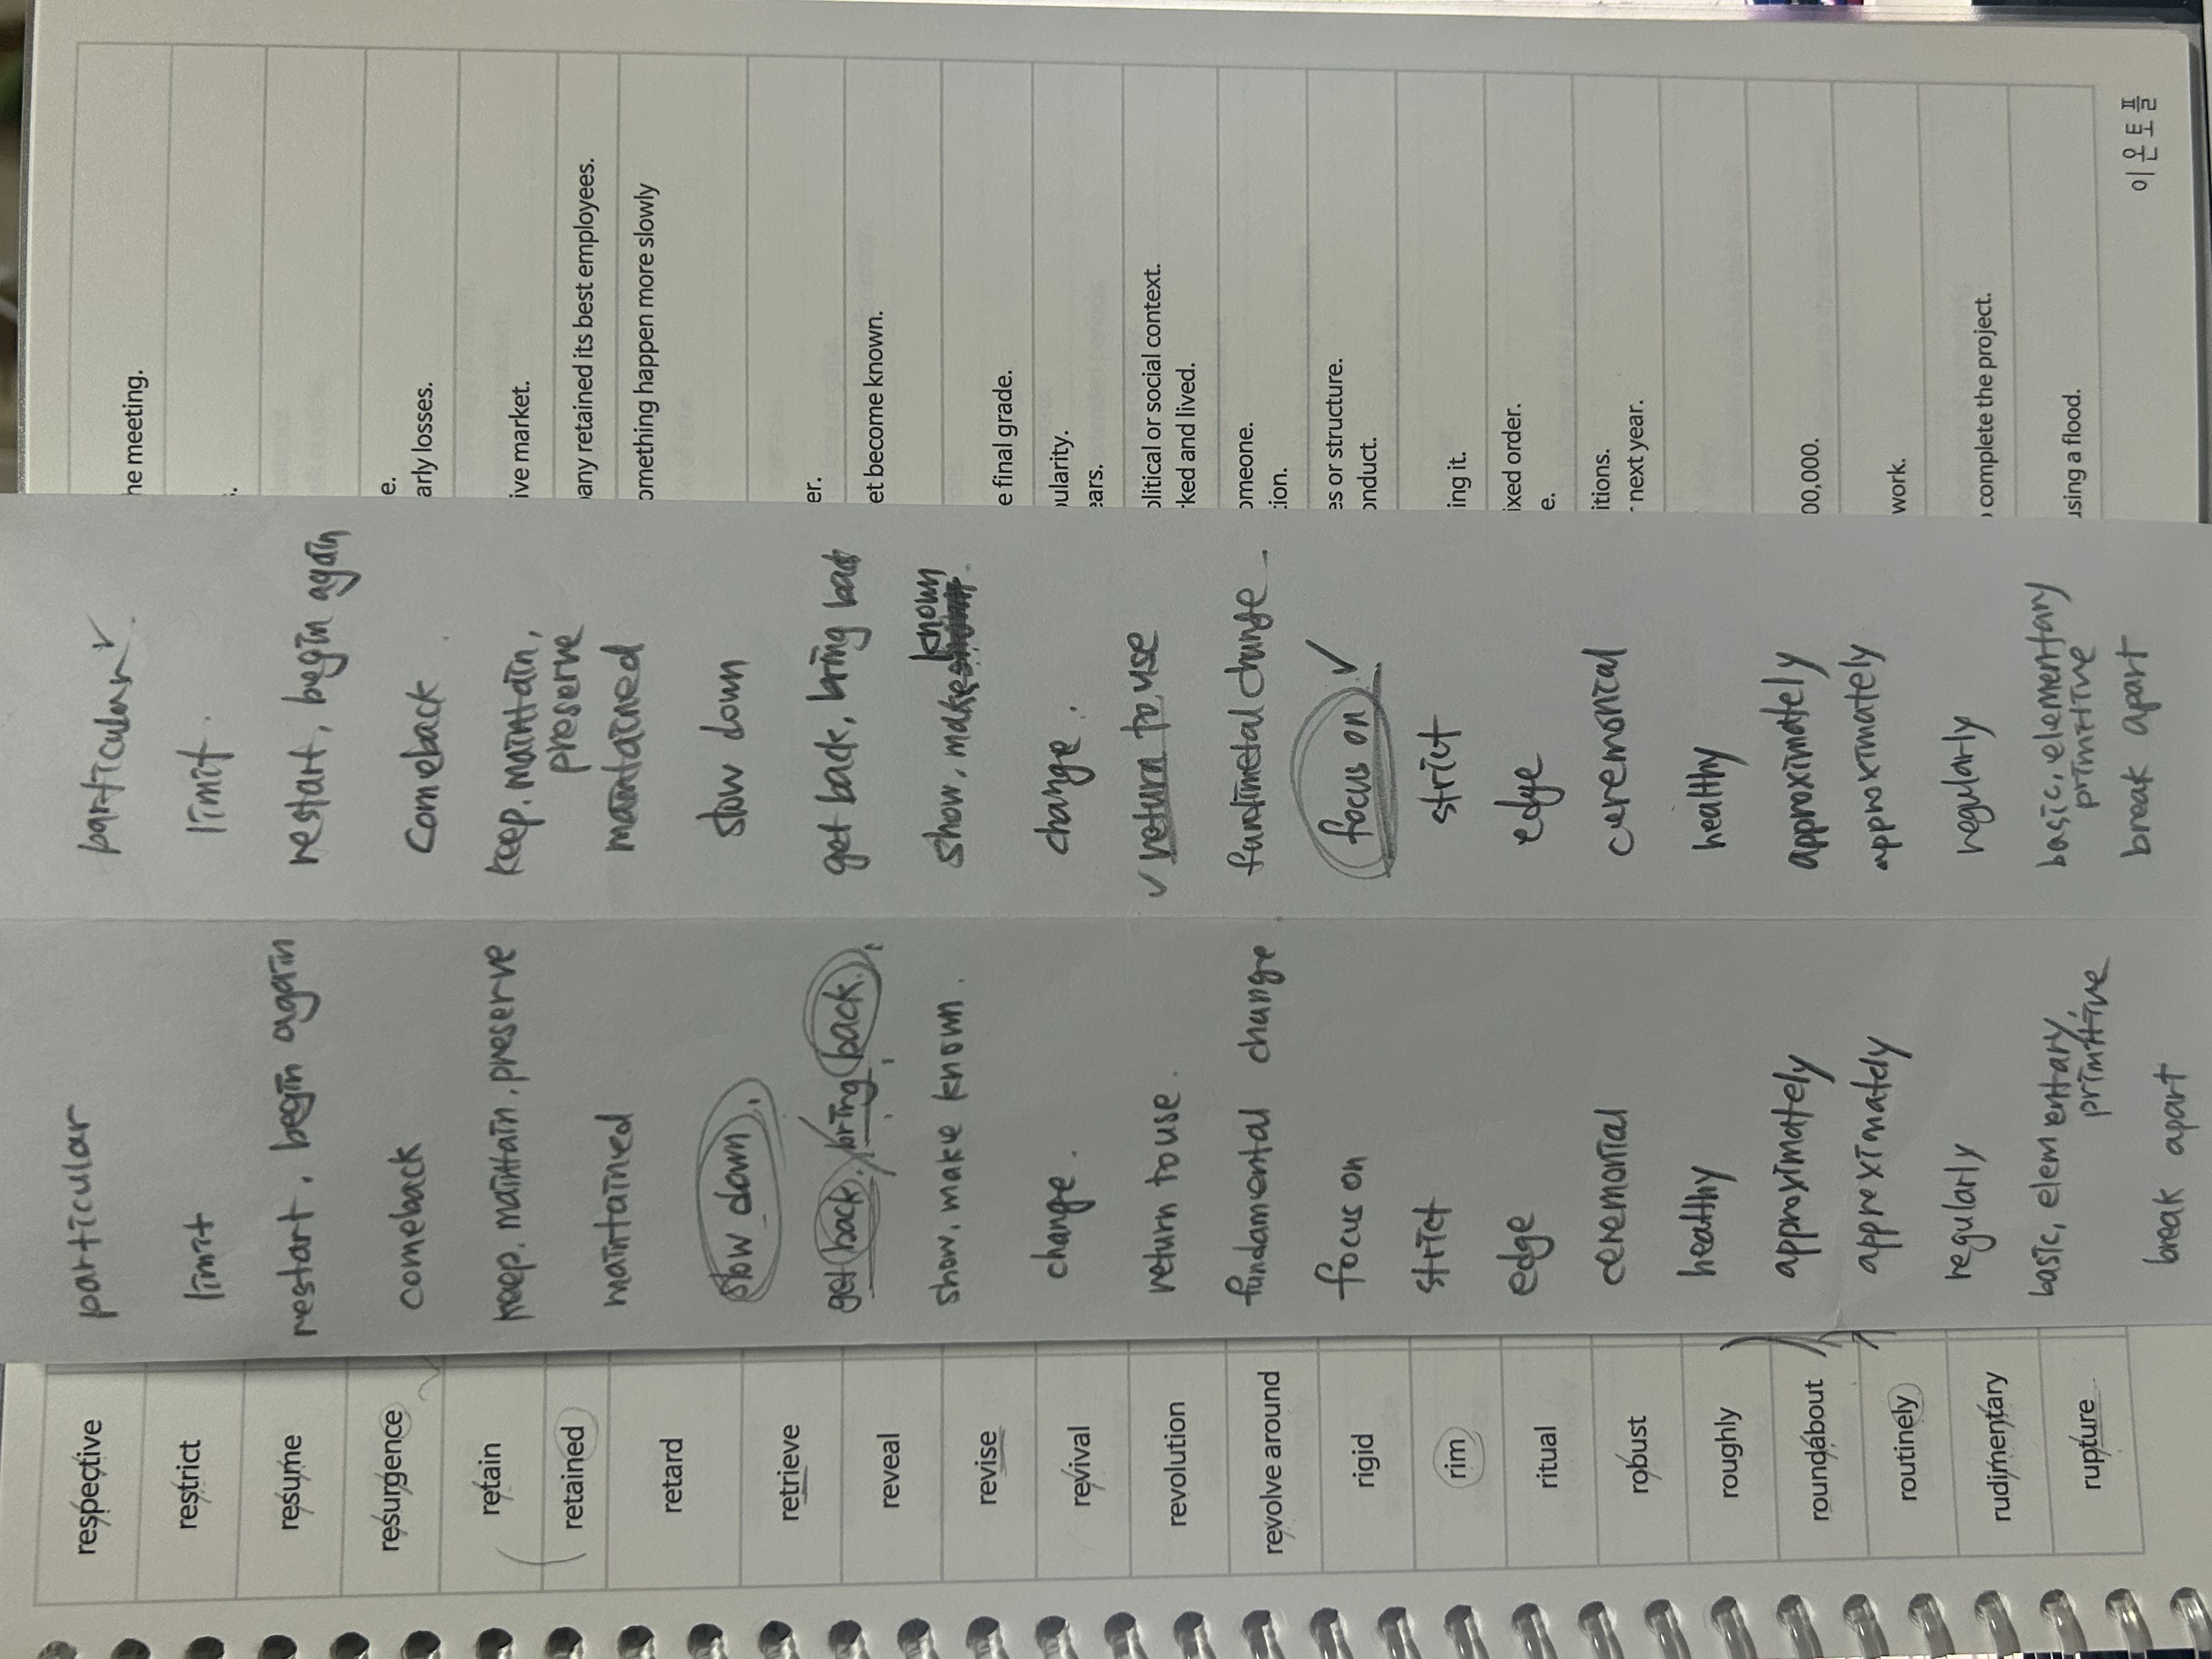 respective
restrict
resume
resurgence
retain
retained
retard
retrieve
reveal
revise
revival
revolution
revolve around
rigid
rim
ritual
robust
roughly
roundabout
routinely
rudimentary
rupture
particular
limit
restart, begin again
comeback
keep, maintain, preserve
maintained
slow down,
get back, bring back,
show, make known.
change.
return to use.
fundamental change
focus on
strict
edge
ceremonial
healthy
approximately
approximately
regularly
basic, elementary,
primitive
break apart
particular
limit.
restart, begin again
comeback.
keep, maintain,
preserve
maintained
slow down
get back, bring back
show, make known.
change.
return to use
fundimetal change
focus on
strict
edge
ceremonial
healthy
approximately
approximately
regularly
basic, elementary
primitive
break apart
he meeting.
e.
arly losses.
ive market.
any retained its best employees.
omething happen more slowly
er.
et become known.
e final grade.
ularity.
ears.
olitical or social context.
ked and lived.
omeone.
tion.
es or structure.
onduct.
ing it.
ixed order.
e.
itions.
next year.
00,000.
work.
complete the project.
using a flood.
이온토플